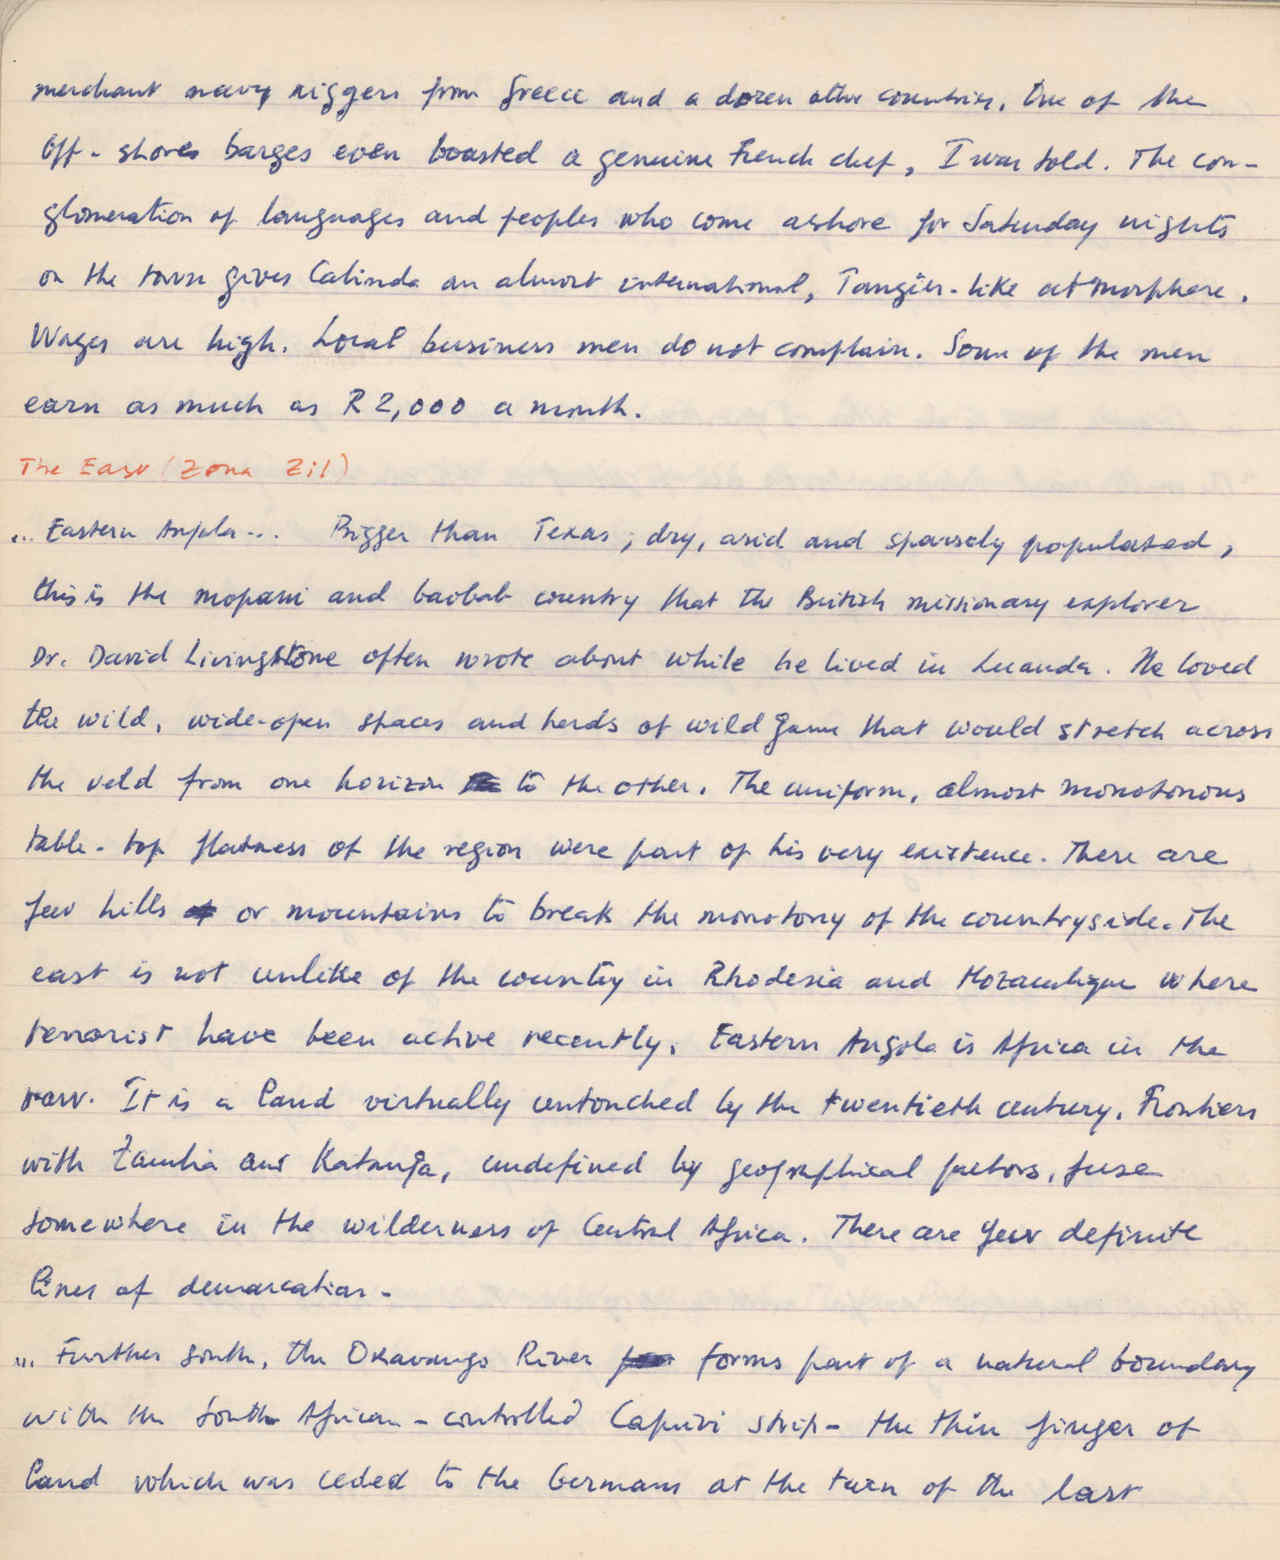 merchant navy riggers from Greece and a dozen other countries. One of the
off-shores barges even boasted a genuine French chef, I was told. The con-
glomeration of languages and peoples who come ashore for Saturday nights
on the town gives Cabinda an almost international, Tangier-like atmosphere.
Wages are high. Local business men do not complain. Some of the men
earn as much as R 2,000 a month.
The East (Zona Zil)
... Eastern Angola... Bigger than Texas; dry, arid and sparsely populated,
this is the mopani and baobab country that the British missionary explorer
Dr. David Livingstone often wrote about while he lived in Luanda. He loved
the wild, wide-open spaces and herds of wild game that would stretch across
the veld from one horizon to the other. The uniform, almost monotonous
table-top flatness of the region were part of his very existence. There are
few hills or mountains to break the monotony of the countryside. The
east is not unlike of the country in Rhodesia and Mozambique where
terrorist have been active recently. Eastern Angola is Africa in the
raw. It is a land virtually untouched by the twentieth century. Frontiers
with Zambia and Katanga, undefined by geographical factors, fuse
somewhere in the wilderness of Central Africa. There are few definite
lines of demarcation-
... Further south, the Okavango River forms part of a natural boundary
with the South African-controlled Caprivi strip- the thin finger of
land which was ceded to the Germans at the turn of the last